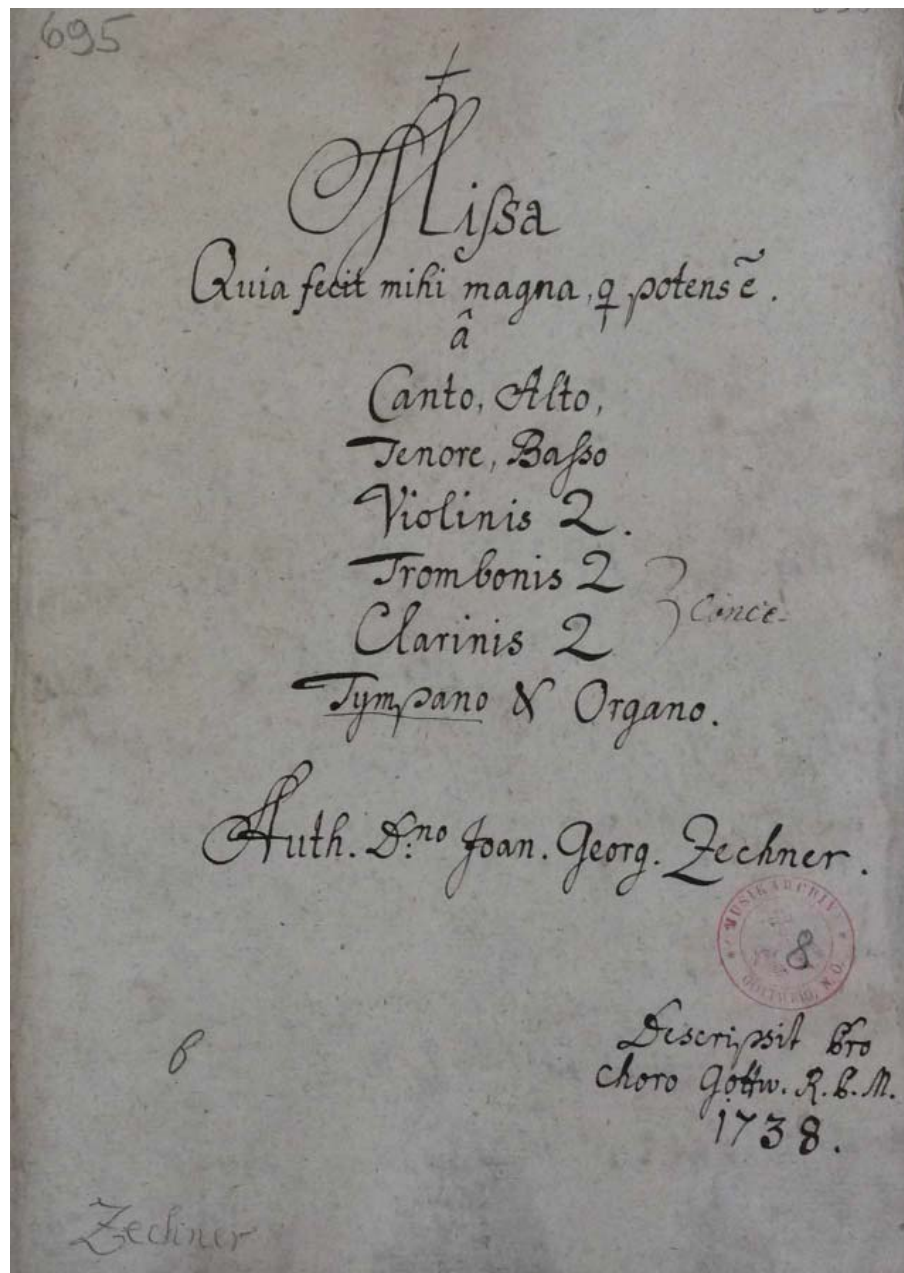 695
Missa
Quia fecit mihi magna, q potens ē.
â
Canto, Alto,
Tenore, Baſso
Violinis 2.
Trombonis 2
Clarinis 2
Conce-
Tympano & Organo.
Auth. D:no Joan. Georg. Zechner.
MUSIKARCHIV
GÖTTWEIG, N.Ö.
8
Descripsit Pro
Choro Gottw. R. P. M.
1738.
Zechner